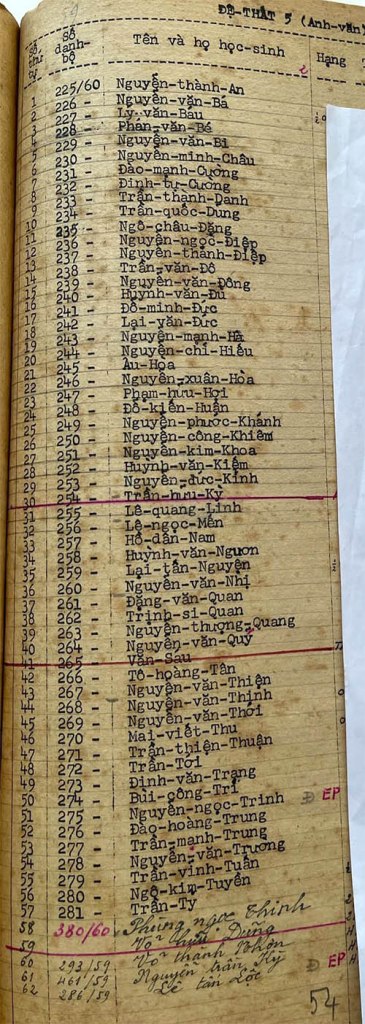 ĐỆ-THẤT 5 (Anh-văn)
Số thứ tự Số danh-bộ Tên và họ học-sinh Hạng
1 225/60 Nguyễn-thành-An
2 226 - Nguyễn-văn-Bá
3 227 - Lý-văn-Báu
4 228 - Phan-văn-Bé
5 229 - Nguyễn-văn-Bi
6 230 - Nguyễn-minh-Châu
7 231 - Đào-mạnh-Cường
8 232 - Đinh-tự-Cường
9 233 - Trần-thanh-Danh
10 234 - Trần-quốc-Dung
11 235 - Ngô-châu-Đặng
12 236 - Nguyễn-ngọc-Điệp
13 237 - Nguyễn-thành-Điệp
14 238 - Trần-văn-Đô
15 239 - Nguyễn-văn-Đông
16 240 - Huỳnh-văn-Đủ
17 241 - Đỗ-minh-Đức
18 242 - Lại-văn-Đức
19 243 - Nguyễn-mạnh-Hà
20 244 - Nguyễn-chí-Hiếu
21 245 - Âu-Hòa
22 246 - Nguyễn-xuân-Hòa
23 247 - Phạm-hữu-Hợi
24 248 - Đỗ-kiến-Huấn
25 249 - Nguyễn-phước-Khánh
26 250 - Nguyễn-công-Khiêm
27 251 - Nguyễn-kim-Khoa
28 252 - Huỳnh-văn-Kiệm
29 253 - Nguyễn-đức-Kỉnh
30 254 - Trần-hưu-Kỷ
31 255 - Lê-quang-Linh
32 256 - Lê-ngọc-Mến
33 257 - Hồ-dân-Nam
34 258 - Huỳnh-văn-Ngươn
35 259 - Lại-tấn-Nguyện
36 260 - Nguyễn-văn-Nhị
37 261 - Đặng-văn-Quan
38 262 - Trịnh-sĩ-Quan
39 263 - Nguyễn-thượng-Quang
40 264 - Nguyễn-văn-Quý
41 265 Văn-Sáu
42 266 - Tô-hoàng-Tân
43 267 - Nguyễn-văn-Thiện
44 268 - Nguyễn-văn-Thịnh
45 269 - Nguyễn-văn-Thới
46 270 - Mai-viết-Thu
47 271 - Trần-thiện-Thuận
48 272 - Trần-Tới
49 273 - Đinh-văn-Trang
50 274 - Bùi-công-Trí
51 275 - Nguyễn-ngọc-Trinh Đ EP
52 276 - Đào-hoàng-Trung
53 277 - Trần-mạnh-Trung
54 278 - Nguyễn-văn-Trường
55 279 - Trần-vinh-Tuấn
56 280 - Ngô-kim-Tuyền
57 281 - Trần-Tỷ
58 380/60 Phùng ngọc Thinh
59 Võ Dũng
60 293/59 Võ thành Nhơn
61 461/59 Nguyễn trần Kỷ Đ EP
62 286/59 Lê tấn Lộc
54